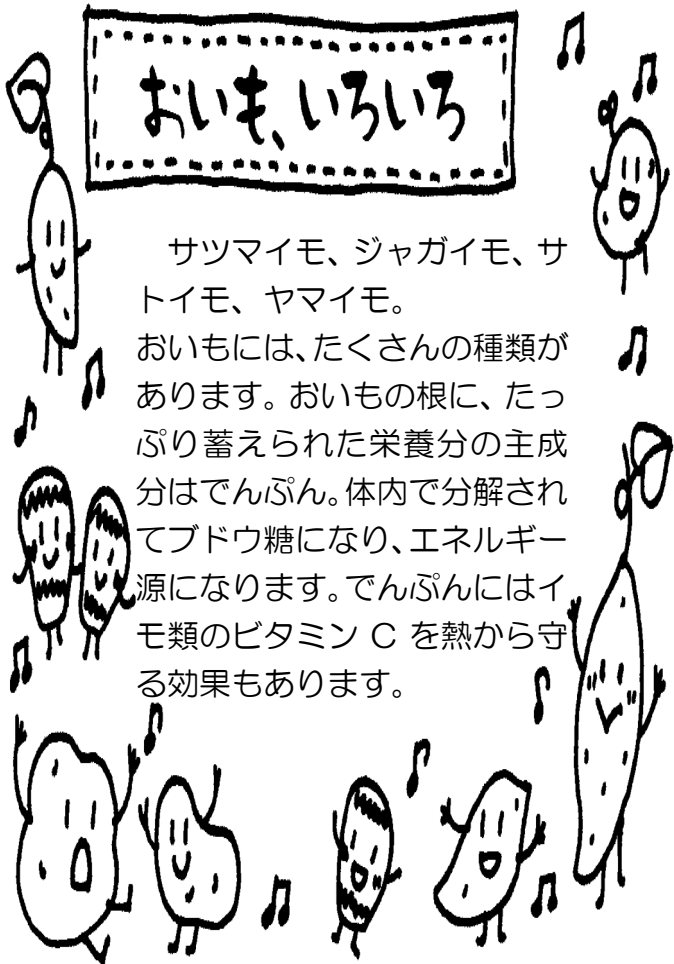 おいも、いろいろ
サツマイモ、ジャガイモ、サ
トイモ、ヤマイモ。
おいもには、たくさんの種類が
あります。おいもの根に、たっ
ぷり蓄えられた栄養分の主成
分はでんぷん。体内で分解され
てブドウ糖になり、エネルギー
源になります。でんぷんにはイ
モ類のビタミン C を熱から守
る効果もあります。